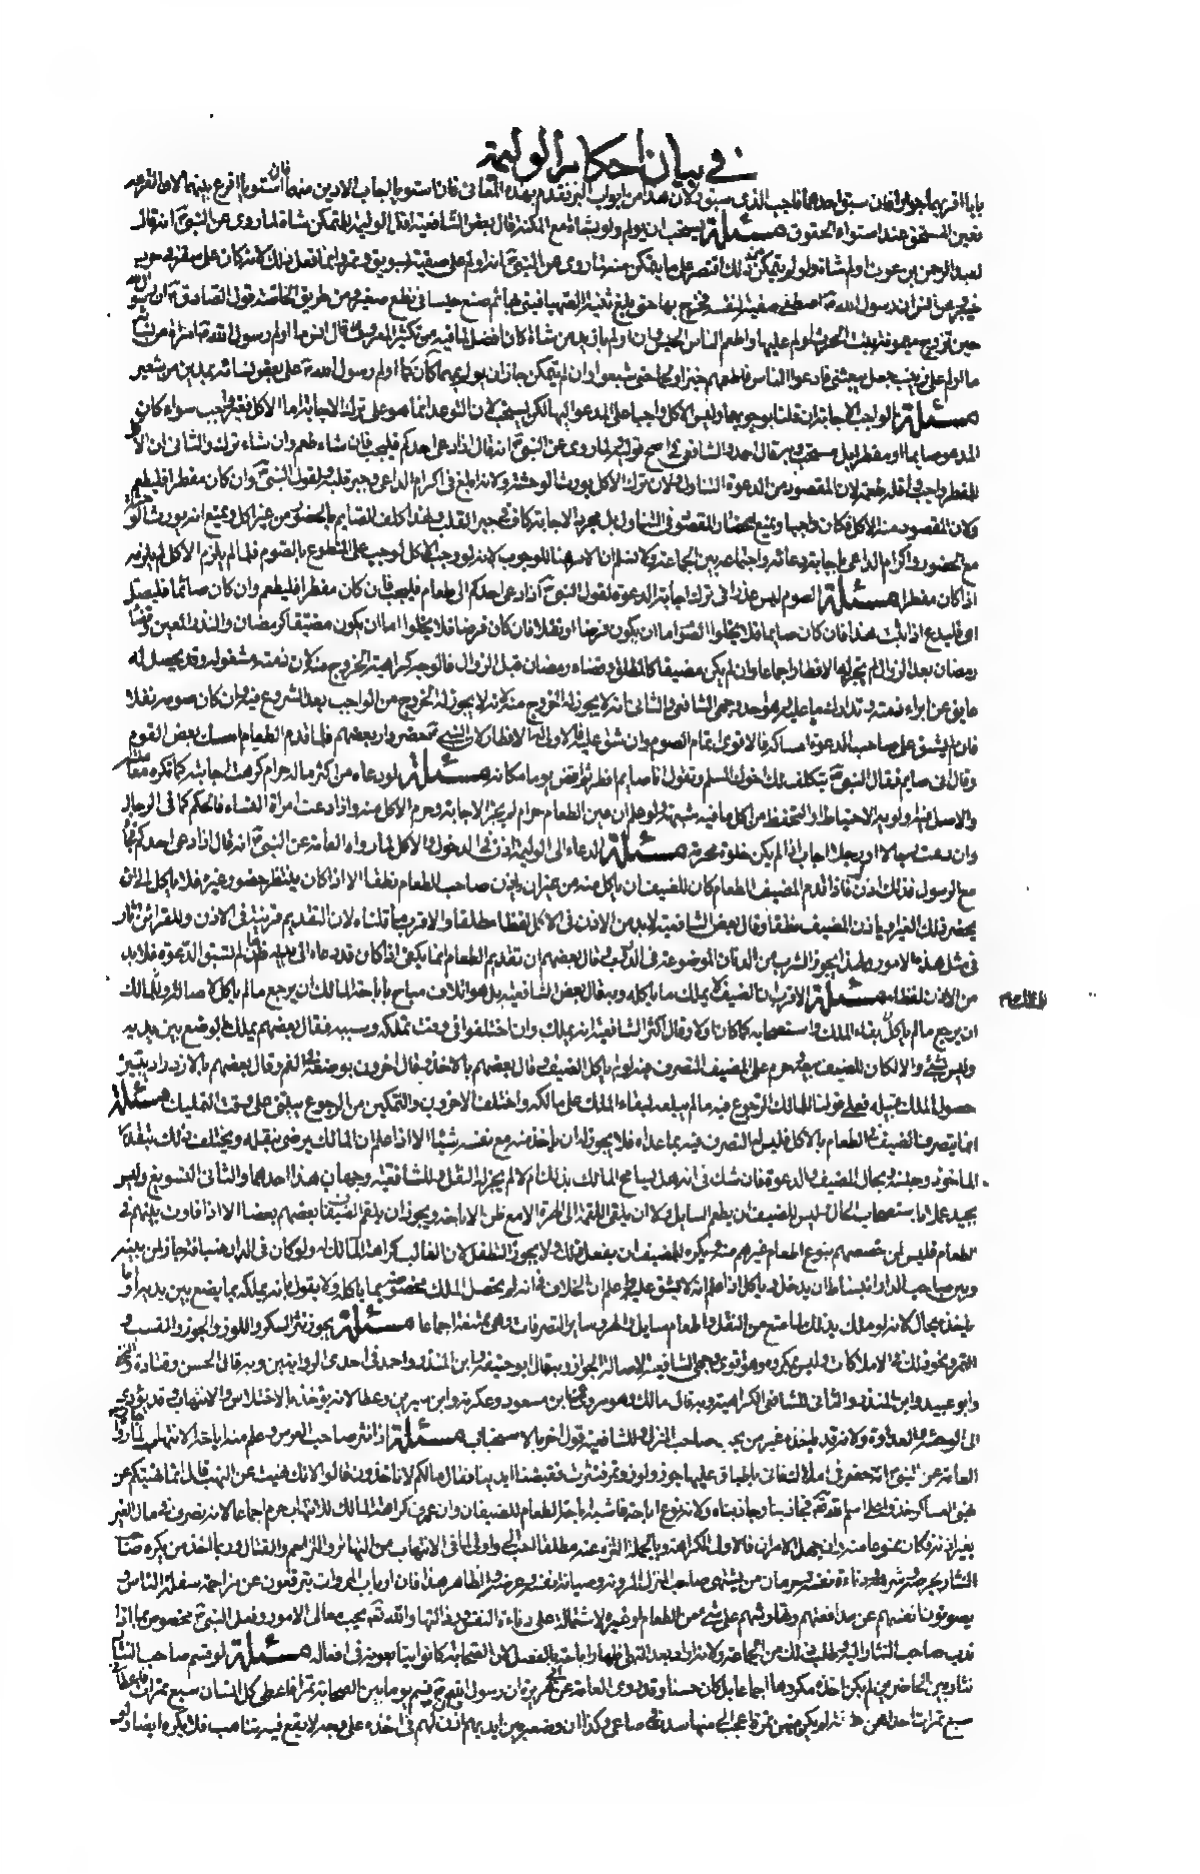 في بيان احكام الوليمة
بابا اقربهما جوارا فان سبق احدهما فاجب الذي سبق ولان هذا من ابواب البر فقدم بهذه المعاني فان استويا اجاب الاقرب منهما فان استويا اقرع بينهما لان القرعة
تعين المستحق عند استواء الحقوق مسئلة يستحب ان يولم ولو بشاة مع المكنة قال بعض الشافعية اقل الوليمة للمتمكن شاة لما روي عن النبي انه قال
لعبد الرحمن بن عوف اولم ولو بشاة ولو لم يتمكن من ذلك اقتصر على ما يتمكن منه لما روي عن النبي انه اولم على صفية بسويق وتمر وانما فعل ذلك لانه كان على سفر في حرب
خيبر عن انس ان رسول الله اصطفى صفية لنفسه فخرج بها حتى بلغ ثنية الصهباء فبنى بها ثم صنع حيسا في نطع صغير ومن طريق الخاصة قول الصادق ان رسول الله
حين تزوج ميمونة بنت الحرث اولم عليها واطعم الناس الحيس وان اولم بازيد من شاة كان افضل لما فيه من تكثير المعروف قال انس ما اولم رسول الله على امراة من نسائه
ما اولم على زينب جعل يبعثني فادعوا الناس فاطعمهم خبزا ولحما حتى شبعوا وان لم يتمكن جاز ان يولم بمهما كان كما اولم رسول الله على بعض نسائه بمدين من شعير
مسئلة الواجب الاجابة ان قلنا بوجوبها وليس الاكل واجبا على المدعو اليها لكن يستحب لان التوعد انما هو على ترك الاجابة اما الاكل فغير واجب سواء كان
المدعو صائما او مفطرا بل مستحب وبه قال احمد والشافعي في اصح قوليه لما روي عن النبي انه قال اذا دعي احدكم فليجب فان شاء طعم وان شاء ترك والثاني ان الاكل
للمفطر واجب واقله لقمة لان المقصود من الدعوة التناول ولان ترك الاكل يورث الوحشة ولانه ابلغ في اكرام الداعي وجبر قلبه لقول النبي وان كان مفطرا فليطعم
ولان المقصود منه الاكل فكان واجبا ويمنع انحصار القصد في التناول بل مجرد الاجابة كاف في جبر القلب ولهذا كلف الصايم بالحضور من غير اكل ويمنع انه يورث الوحشة
مع الحضور واكرام الداعي باجابة دعائه واجتماعه بين الجماعة ولا نسلم ان الامر هنا للوجوب لانه لو وجب الاكل لوجب على المتطوع بالصوم فلما لم يلزم الاكل لم يلزمه
اذا كان مفطرا مسئلة الصوم ليس عذرا في ترك اجابة الدعوة لقول النبي اذا دعي احدكم الى طعام فليجب فان كان مفطرا فليطعم وان كان صائما فليصل
اي فليدع اذا ثبت هذا فان كان صايما فلا يخلوا الصوم اما ان يكون فرضا او نفلا فان كان فرضا فلا يخلوا اما ان يكون مضيقا كرمضان والنذر المعين وقضاء
رمضان بعد الزوال لم يجز لها الافطار اجماعا وان لم يكن مضيقا كالمطلق وقضاء رمضان قبل الزوال فالوجه كراهية الخروج منه لان ذمته مشغولة وقد يحصل له
عايق عن ابراء ذمته وتدارك ما عليه وهو احد وجهي الشافعي والثاني انه لا يجوز له الخروج منه لانه لا يجوز له الخروج من الواجب بعد الشروع فيه وان كان صومه نفلا
فان لم يشق على صاحب الدعوة امساكه فالاقوى اتمام الصوم وان شق عليه فالاولى له الافطار لان النبي حضر دار بعضهم فلما قدم الطعام امسك بعض القوم
وقال اني صايم فقال النبي يتكلف لك اخوك المسلم وتقول انا صايم افطر ثم اقض يوما مكانه مسئلة لو دعاه من اكثر ماله حرام كرهت اجابته كما تكره معاملته
والاصل فيه اولوية الاحتياط والتحفظ من اكل ما فيه شبهة ولو علم ان عين الطعام حرام لم يجز الاجابة وحرم الاكل منه واذا دعت امراة النساء فالحكم كما في الرجال
وان دعت رجالا او رجلا اجاب اذا لم يكن خلوة محرمة مسئلة الدعاء الى الوليمة اذن في الدخول والاكل لما رواه العامة عن النبي انه قال اذا دعي احدكم فجاء
مع الرسول فذلك اذن فاذا قدم المضيف الطعام كان للضيف ان ياكل منه من غير ان ياذن صاحب الطعام نطقا الا اذا كان ينتظر حضور غيره فلا ياكل الى ان
يحضر ذلك الغير او ياذن المضيف نطقا وقال بعض الشافعية لا بد من الاذن في الاكل لفظا مطلقا والاقرب ما قلناه لان التقديم قرينة في الاذن وللقراين اثار
في مثل هذه الامور ولهذا يجوز الشرب من الدنان الموضوعة في الدكة وقال بعضهم ان تقديم الطعام انما يكفي اذا كان قد دعاه الى بيته فاما اذا لم تسبق الدعوة فلا بد
من الاذن لفظا مسئلة الاقرب ان الضيف لا يملك ما ياكله وبه قال بعض الشافعية بل هو اتلاف مباح باباحة المالك ان يرجع ما لم ياكل لاصالة بقاء المالك
ان يرجع ما لم ياكل بقاء الملك واستصحابه كما كان اولا وقال اكثر الشافعية انه يملك وان اختلفوا في وقت تملكه وسببه فقال بعضهم يملك بالوضع بين يديه
وليس بشئ والا لكان للضيف بيعه وحرم على المضيف التصرف فيه لو لم ياكل الضيف وقال بعضهم بالاخذ وقال اخرون بوضعه في الفم وقال بعضهم بالازدراد يتبين
حصول الملك قبيله فعلى قولنا للمالك الرجوع فيه ما لم يبلعه لبقاء الملك على مالكه واختلف الاخرون والتمكين من الرجوع مبني على وقت التمليك مسئلة
انما يتصرف الضيف في الطعام بالاكل فليس له التصرف فيه بما عداه فلا يجوز له ان ياخذ منه مع نفسه شيئا الا اذا علم ان المالك يرضى بفعله ويختلف ذلك بقدر
الماخوذ وجنسه وبحال المضيف والدعوة فان شك في انه هل يسامح المالك بذلك ام لا لم يجز له النقل وللشافعية وجهان هذا احدهما والثاني التسويغ وليس
بجيد عملا باستصحاب الحال وليس للضيف ان يطعم السايل ولا ان يلقي اللقمة الى الهرة الا مع ظن الاباحة ويجوز ان يلقم الضيفان بعضهم بعضا الا اذا فاوت بينهم في
الطعام فليس لمن خصصهم بنوع اطعام غيرهم منه ويكره للمضيف ان يفعل ذلك ولا يجوز التطفل لان الغالب كراهة المالك له ولو كان في الدار ضيافة جاز لمن بينه
وبين صاحب الدار انبساط ان يدخل وياكل اذا علم انه لا يشق عليه واعلم ان الخلاف في انه لو يحصل الملك مخصوص بما ياكله ولا يقول بانه يملكه بما يضع بين يديه او ما
ياخذه بحال لانه لو ملك بذلك لما منع من النقل واطعام سايل والهر وساير التصرفات وهي ممتنعة اجماعا مسئلة يجوز نثر السكر واللوز والجوز والقسب و
التمر ونحو ذلك في الاملاكات وليس بمكروه وهو قوي وجهي الشافعية لاصالة الجواز وبه قال ابو حنيفة وابن المنذر واحمد في احدى الروايتين وبه قال الحسن وقتادة والنخعي
وابو عبيد وابن المنذر والثاني للشافعي الكراهية وبه قال مالك وهو مروي عن ابن مسعود وعكرمة وابن سيرين وعطا لانه يؤخذ بالاختلاس والانتهاب وقد يؤدي
الى الوحشة والعداوة ولانه قد ياخذه غير من يحب صاحب المنزل وللشافعية قول اخر بالاستحباب مسئلة اذا نثر صاحب العرس وعلم منه اباحة الانتهاب جاز لما روي
العامة عن النبي انه حضر في املاك فاتي باطباق عليها جوز ولوز وتمر فنثرت فقبضنا ايدينا فقال ما لكم لا تاخذون قالوا لانك نهيت عن النهب قال انما نهيتكم عن
نهبى العساكر خذوا على اسم الله فجاذبنا وجاذبناه ولانه نوع اباحة فاشبه اباحة الطعام للضيفان وان عرف كراهة المالك للانتهاب حرم اجماعا لانه تصرف في مال الغير
بغير اذنه فكان ممنوعا منه وان جهل الامران فالاولى الكراهة وبالجملة التنزه عنه مطلقا احب الي واولى لما في الانتهاب من التهاتر والتزاحم والقتال وربما اخذه من يكره صاحب
النثار لحرصه وشرهه ودناءة نفسه وحرمان من يشتهي صاحب المنزل لمروته وصيانة نفسه وعرضه والظاهر هذا فان ارباب المروات يترفعون عن مزاحمة سفلة الناس و
يصونون انفسهم عن مدافعتهم ومقاومتهم على شئ من الطعام او غيره لاشتماله على دناءة النفس ورذالتها والله تعالى يحب معالى الامور وفعل النبي مخصوص بما اذا
ندب صاحب النثار اليه وطلب ذلك من الجماعة مسئلة لو قسم صاحب النثار
نثاره بين الحاضرين لم يكن اخذه مكروها اجماعا بل كان حسنا وقد روى العامة عن ابي هريرة ان رسول الله قسم يوما بين الصحابة تمرا فاعطى كل انسان سبع تمرات فاعطاني
سبع تمرات احداهن حشفة لم يكن فيهن تمرة اعجب الي منها شدت في مضاغي وكذا ان وضعه بين ايديهم واذن لهم في اخذه على وجه لا يقع فيه تناهب فلا يكره ايضا ولو